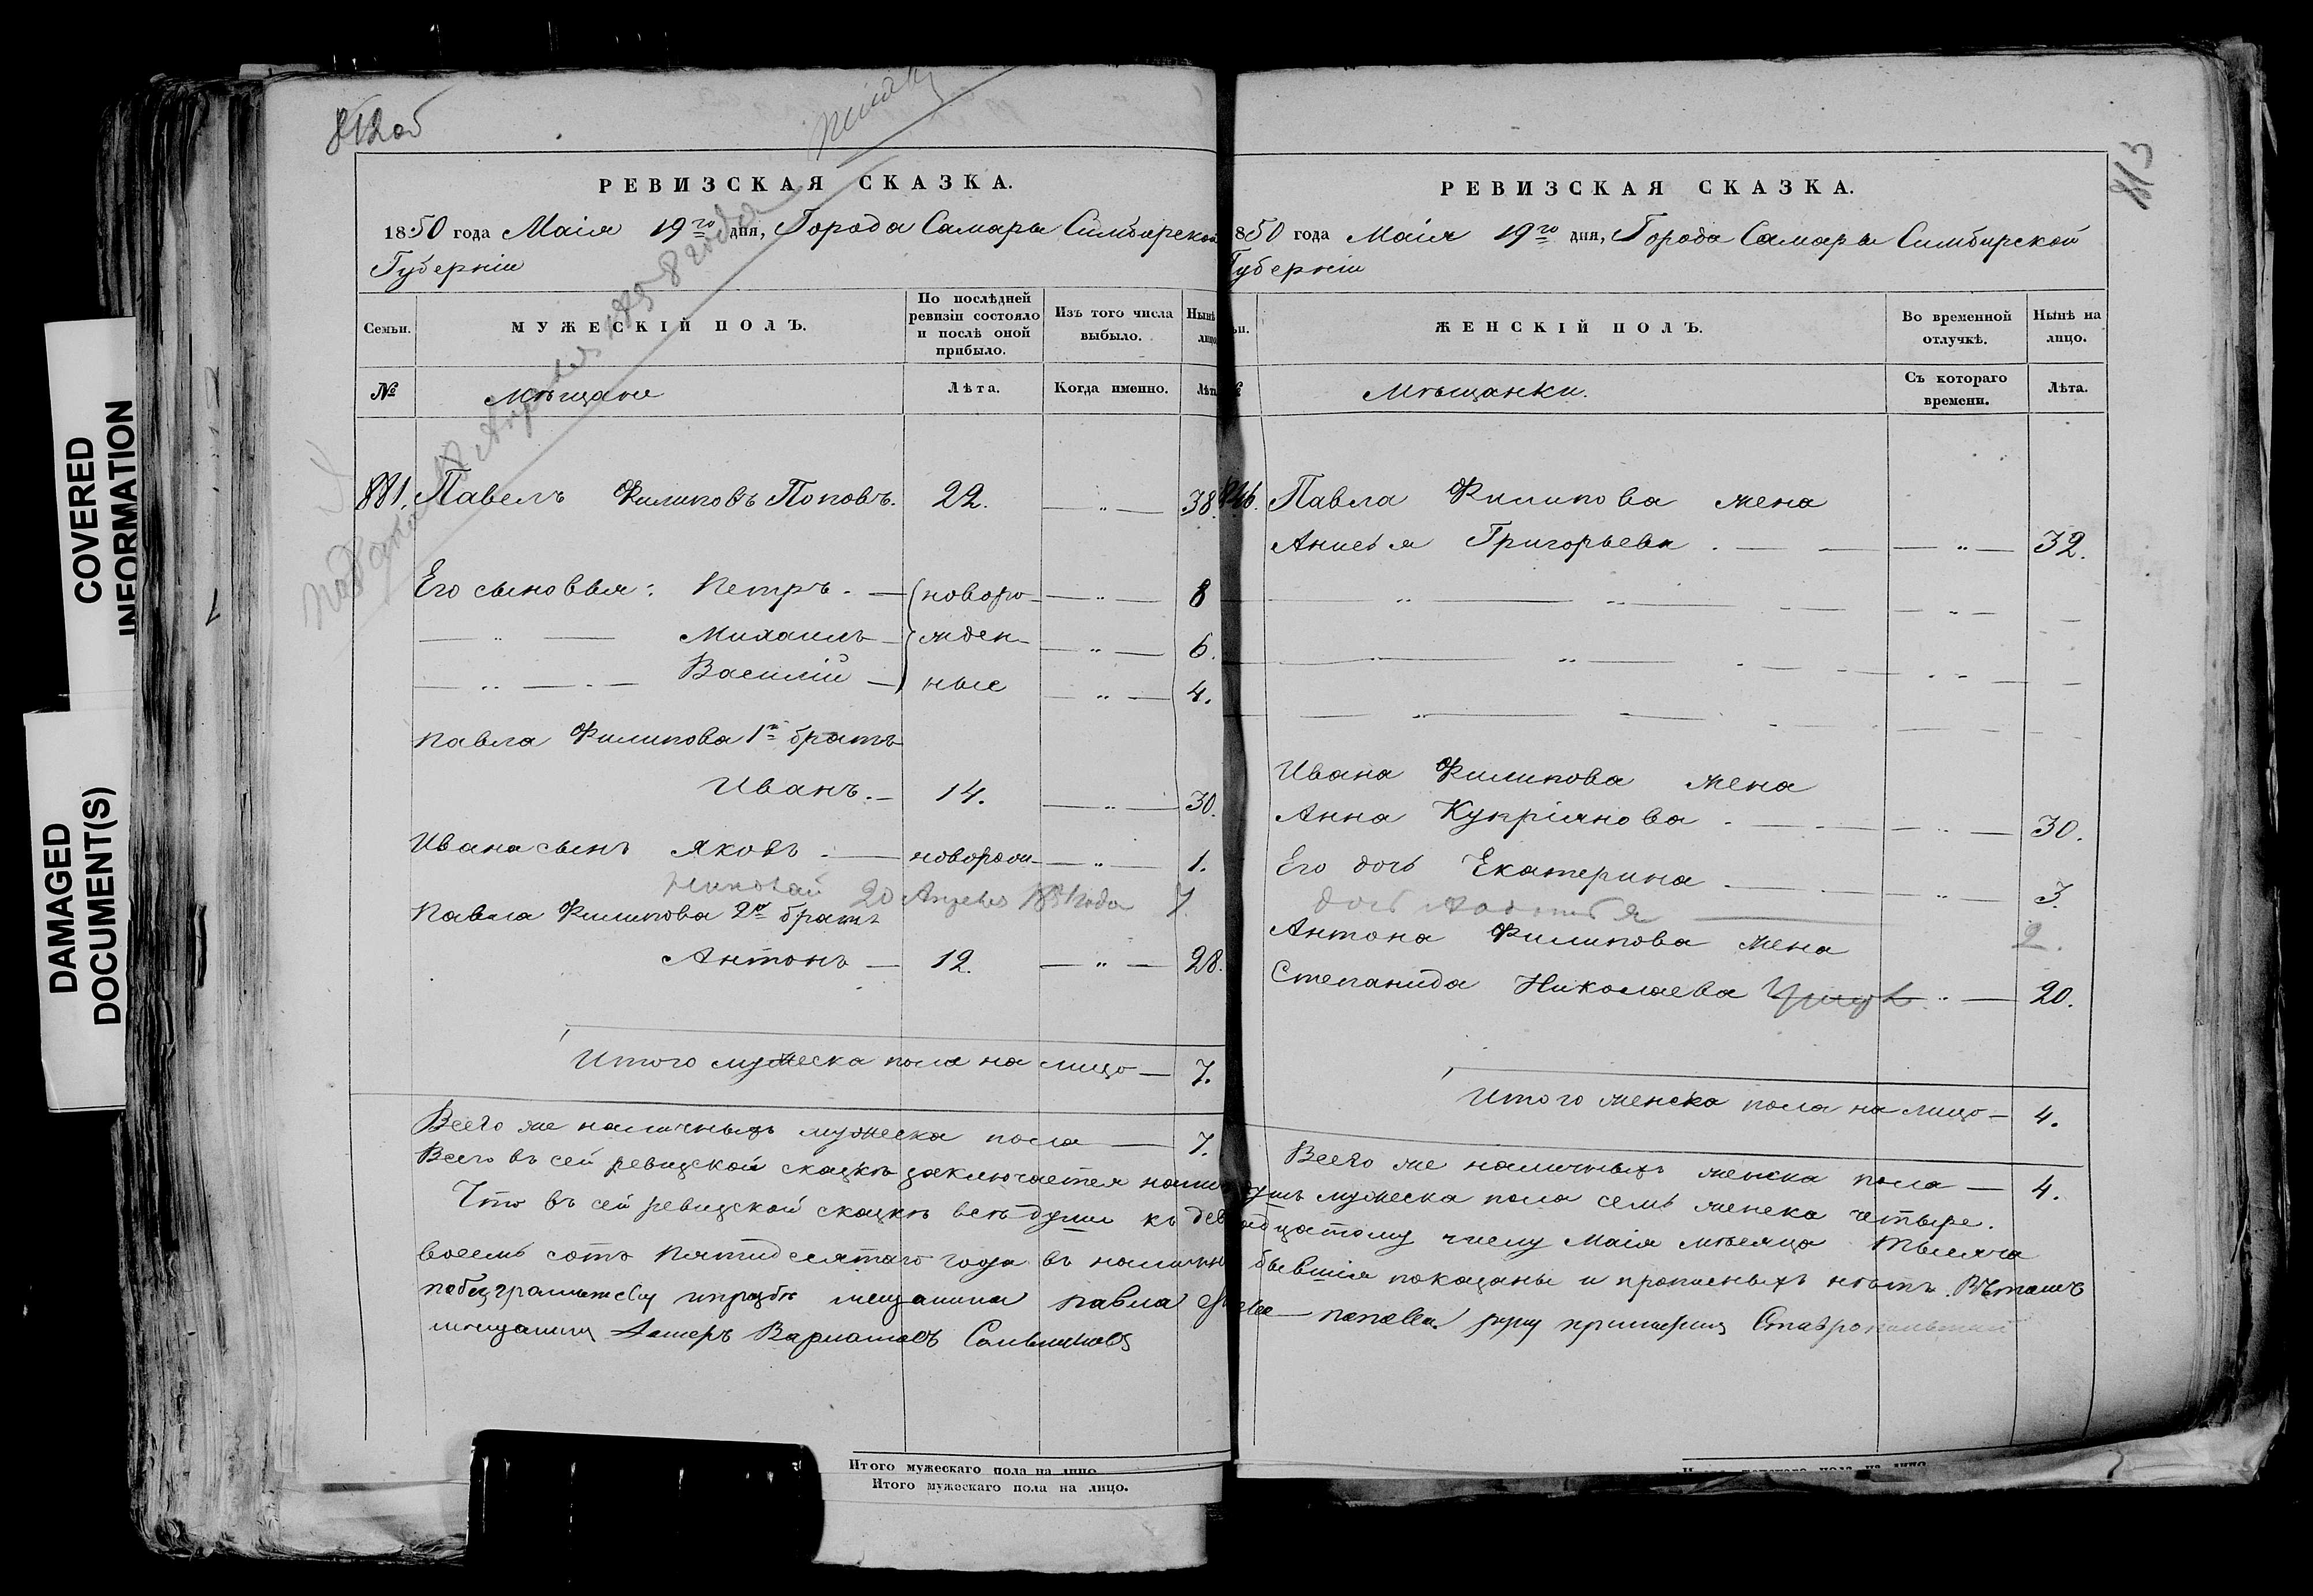 812об
РЕВИЗСКАЯ СКАЗКА.
1850 года Маія 19го дня, Города Самары Симбирской
Губерніи
Семьи.
МУЖЕСКІЙ ПОЛЪ.
По послѣдней ревизіи состояло и послѣ оной прибыло.
Изъ того числа выбыло.
Нынѣ
лицо
№
Мѣщане
Лѣта.
Когда именно.
Лѣта
881. Павелъ Филиповъ Поповъ. 22. — „ — 38.
Его сыновья: Петръ. — новоро- — „ — 8
— „ — Михаилъ — жден- — „ — 6.
— „ — Василій — ные — „ — 4.
Павла Филипова 1й братъ
Иванъ. — 14. — „ — 30.
Ивана сынъ Яковъ. — новорож — „ — 1.
Николай 20 Апреля года 7
Павла Филипова 2й братъ
Антонъ — 12. — „ — 28.
Итого мужеска пола на лицо — 7.
Всего же наличныхъ мужеска пола — 7.
Всего въ сей ревизской сказкѣ заключается налич
Что въ сей ревизской сказкѣ всѣ души къ дев
восемь сотъ пятидесятаго года въ наличн
мещанина Павла
Итого мужескаго пола на лицо
Итого мужескаго пола на лицо.
813
РЕВИЗСКАЯ СКАЗКА.
850 года Маія 19го дня, Города Самары Симбирской
Губерніи
ЖЕНСКІЙ ПОЛЪ.
Во временной отлучкѣ.
Нынѣ на лицо.
Мѣщанки.
Съ котораго времени.
Лѣта.
Павла Филипова жена
Анисья Григорьева. — „ — 32.
Ивана Филипова жена
Анна Купріянова. — „ — 30.
Его дочь Екатерина — „ — 3.
дочь
2.
Антона Филипова жена
Степанида Николаева „ — 20.
Итого женска пола на лицо — 4.
Всего же наличныхъ женска пола — 4.
душъ мужеска пола семь женска четыре.
надцатому числу Маія мѣсяца тысяча
бывшія показаны и прописныхъ нѣтъ. Въ томъ
Попова руку приложилъ